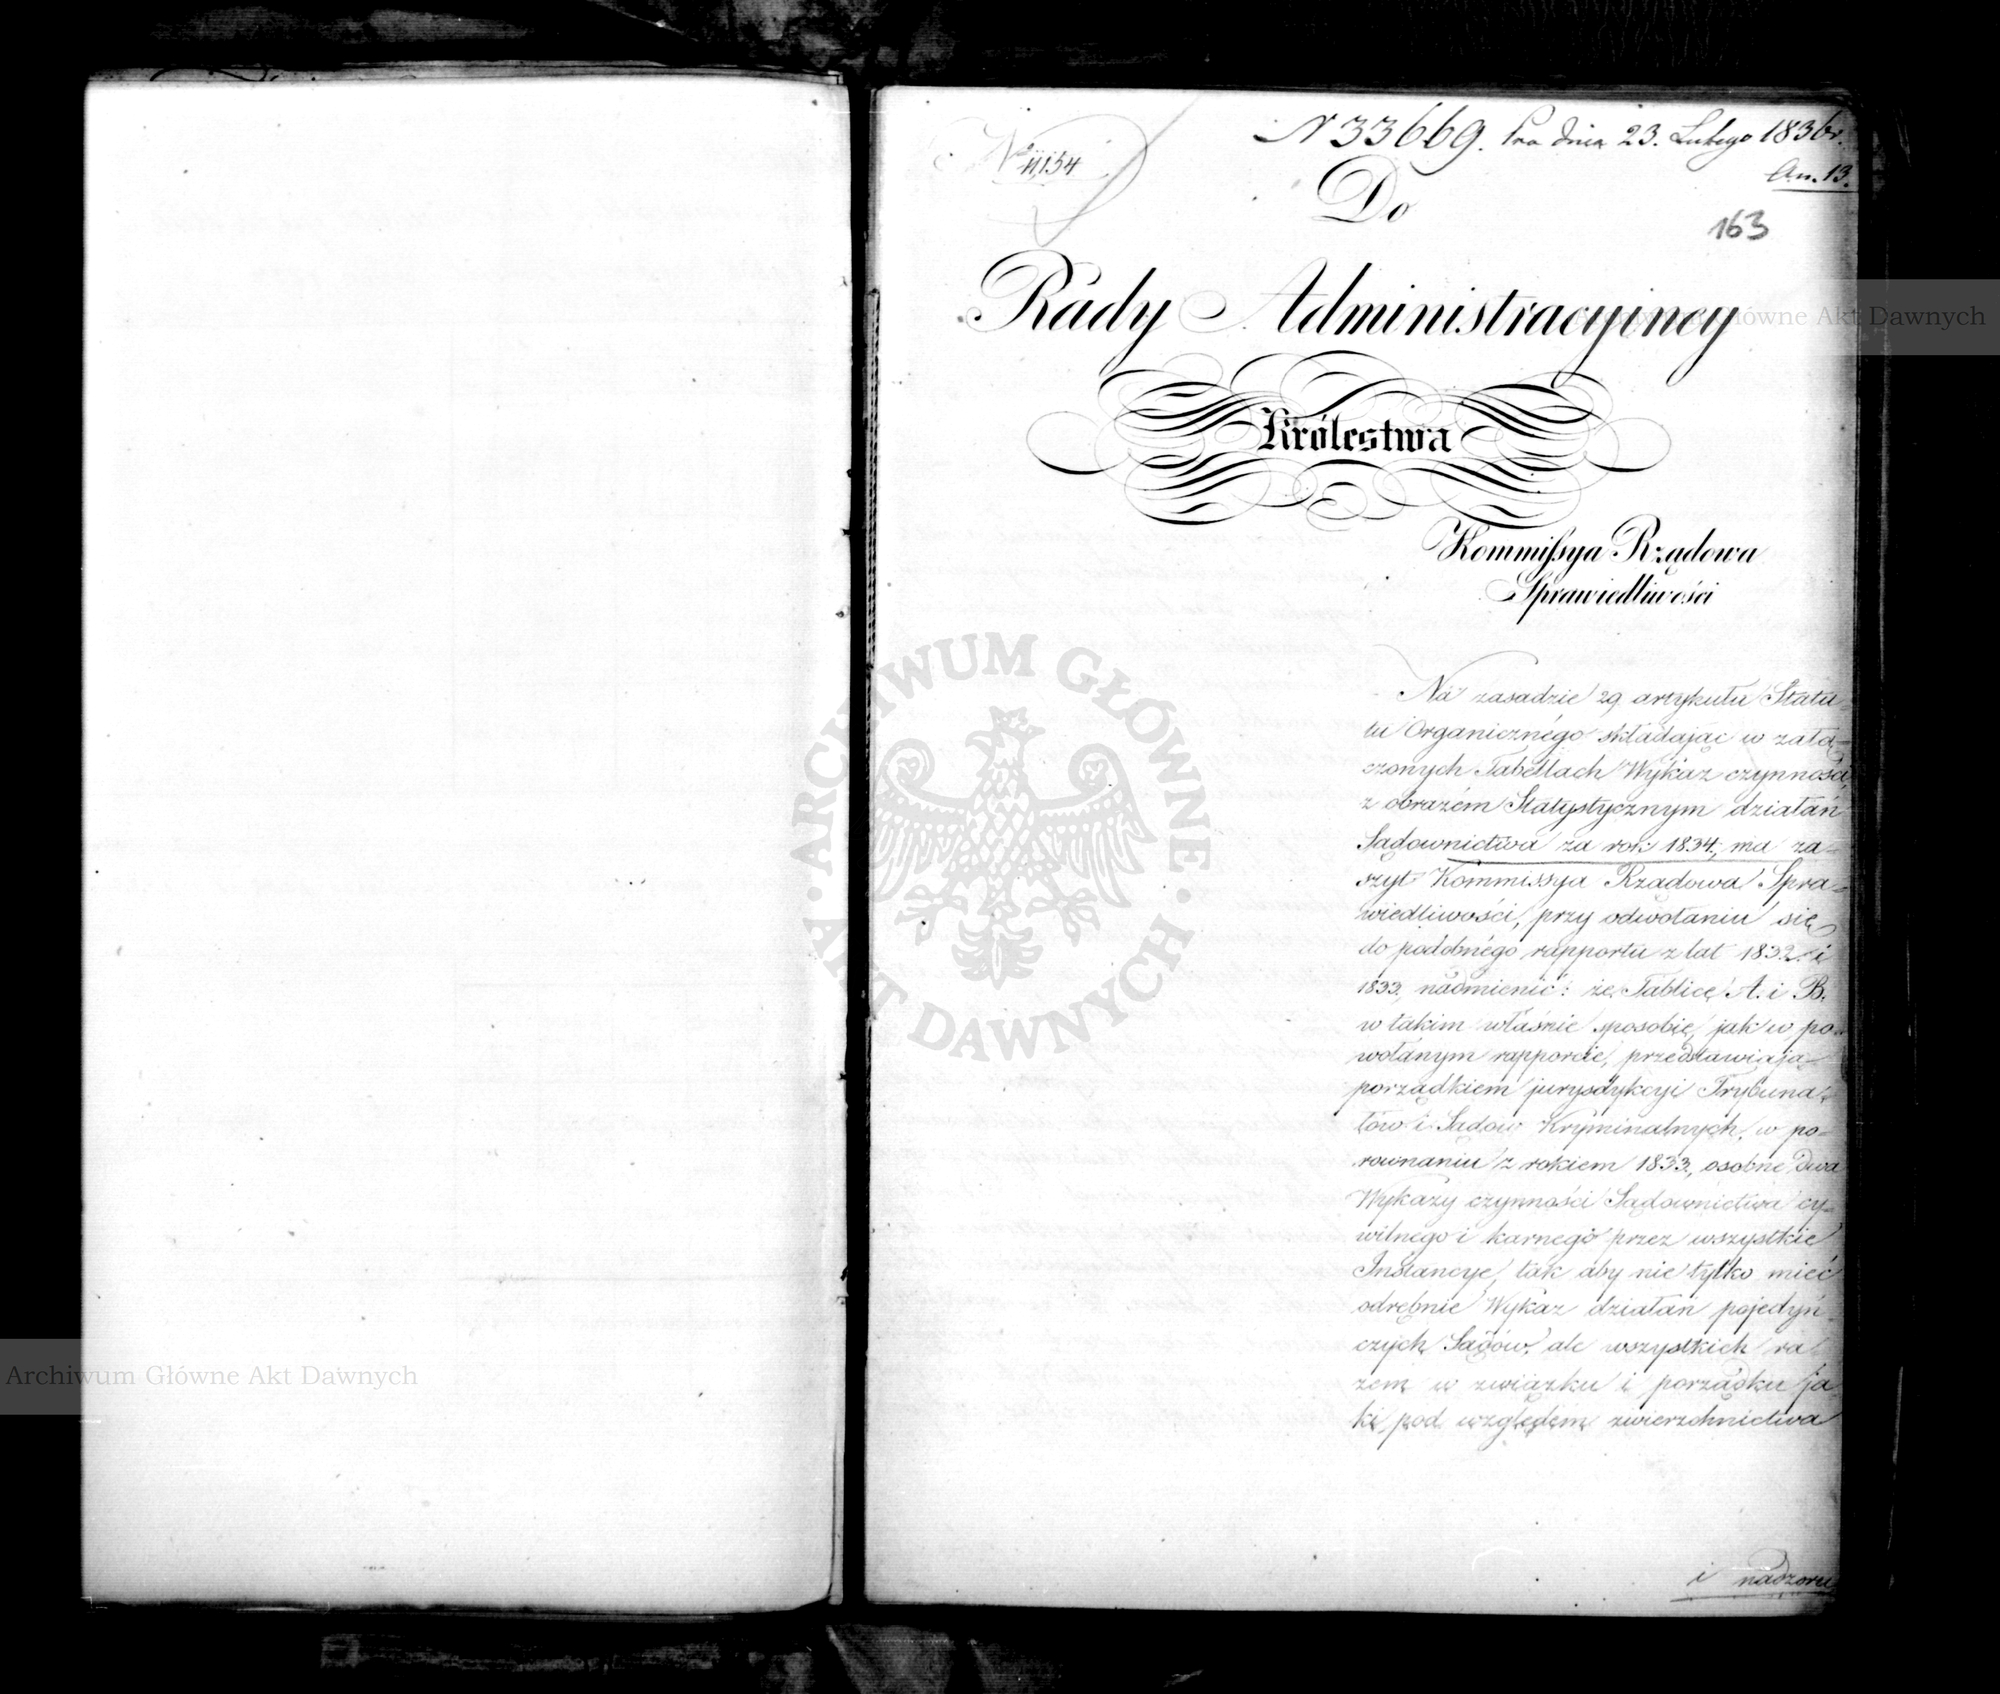 N 33669. Pra dnia 23. Lutego 1836 r.
An. 13.
No 11,154
163
Do
Rady Administracyjney
Królestwa
Kommissya Rządowa
Sprawiedliwości
Na zasadzie 29 artykułu Statu-
tu Organicznégo składając w załą-
czonych Tabellach Wykaz czynności,
z obrazém Statystycznym działań
Sądownictwa za rok 1834, ma za-
szyt Kommissya Rządowa Spra-
wiedliwości, przy odwołaniu się
do podobnégo rapportu z lat 1832 i
1833, nadmienić: że Tablice A. i B.
w takim właśnie sposobie, jak w po-
wołanym rapporcie, przedstawiają
porządkiem jurysdykcyi Trybuna-
łów i Sądów Kryminalnych, w po-
rownaniu z rokiem 1833, osobne dwa
Wykazy czynności Sądownictwa cy-
wilnego i karnego przez wszystkie
Instancye, tak aby nie tylko mieć
odrębnie Wykaz działań pojedyń-
czych Sądów, ale wszystkich ra-
zem w związku i porządku ja-
ki pod względem zwierzchnictwa
i nadzoru
ARCHIWUM GŁÓWNE
AKT DAWNYCH
Archiwum Główne Akt Dawnych
Archiwum Główne Akt Dawnych